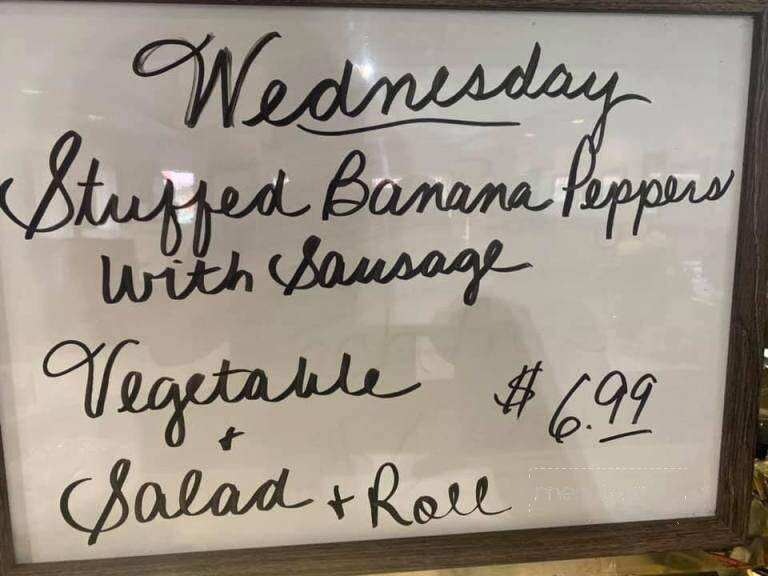 Wednesday
Stuffed Banana Peppers
with Sausage
Vegetable $6.99
+
Salad + Roll